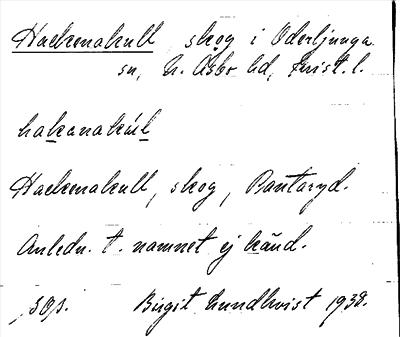 Hackenakull skog i Oderljunga
sn, N. Åsbo hd, Krist. l.
hakanakul
Hackenakull, skog, Bantaryd.
Anledn. t. namnet ej känd.
Birgit Lundkvist 1938.